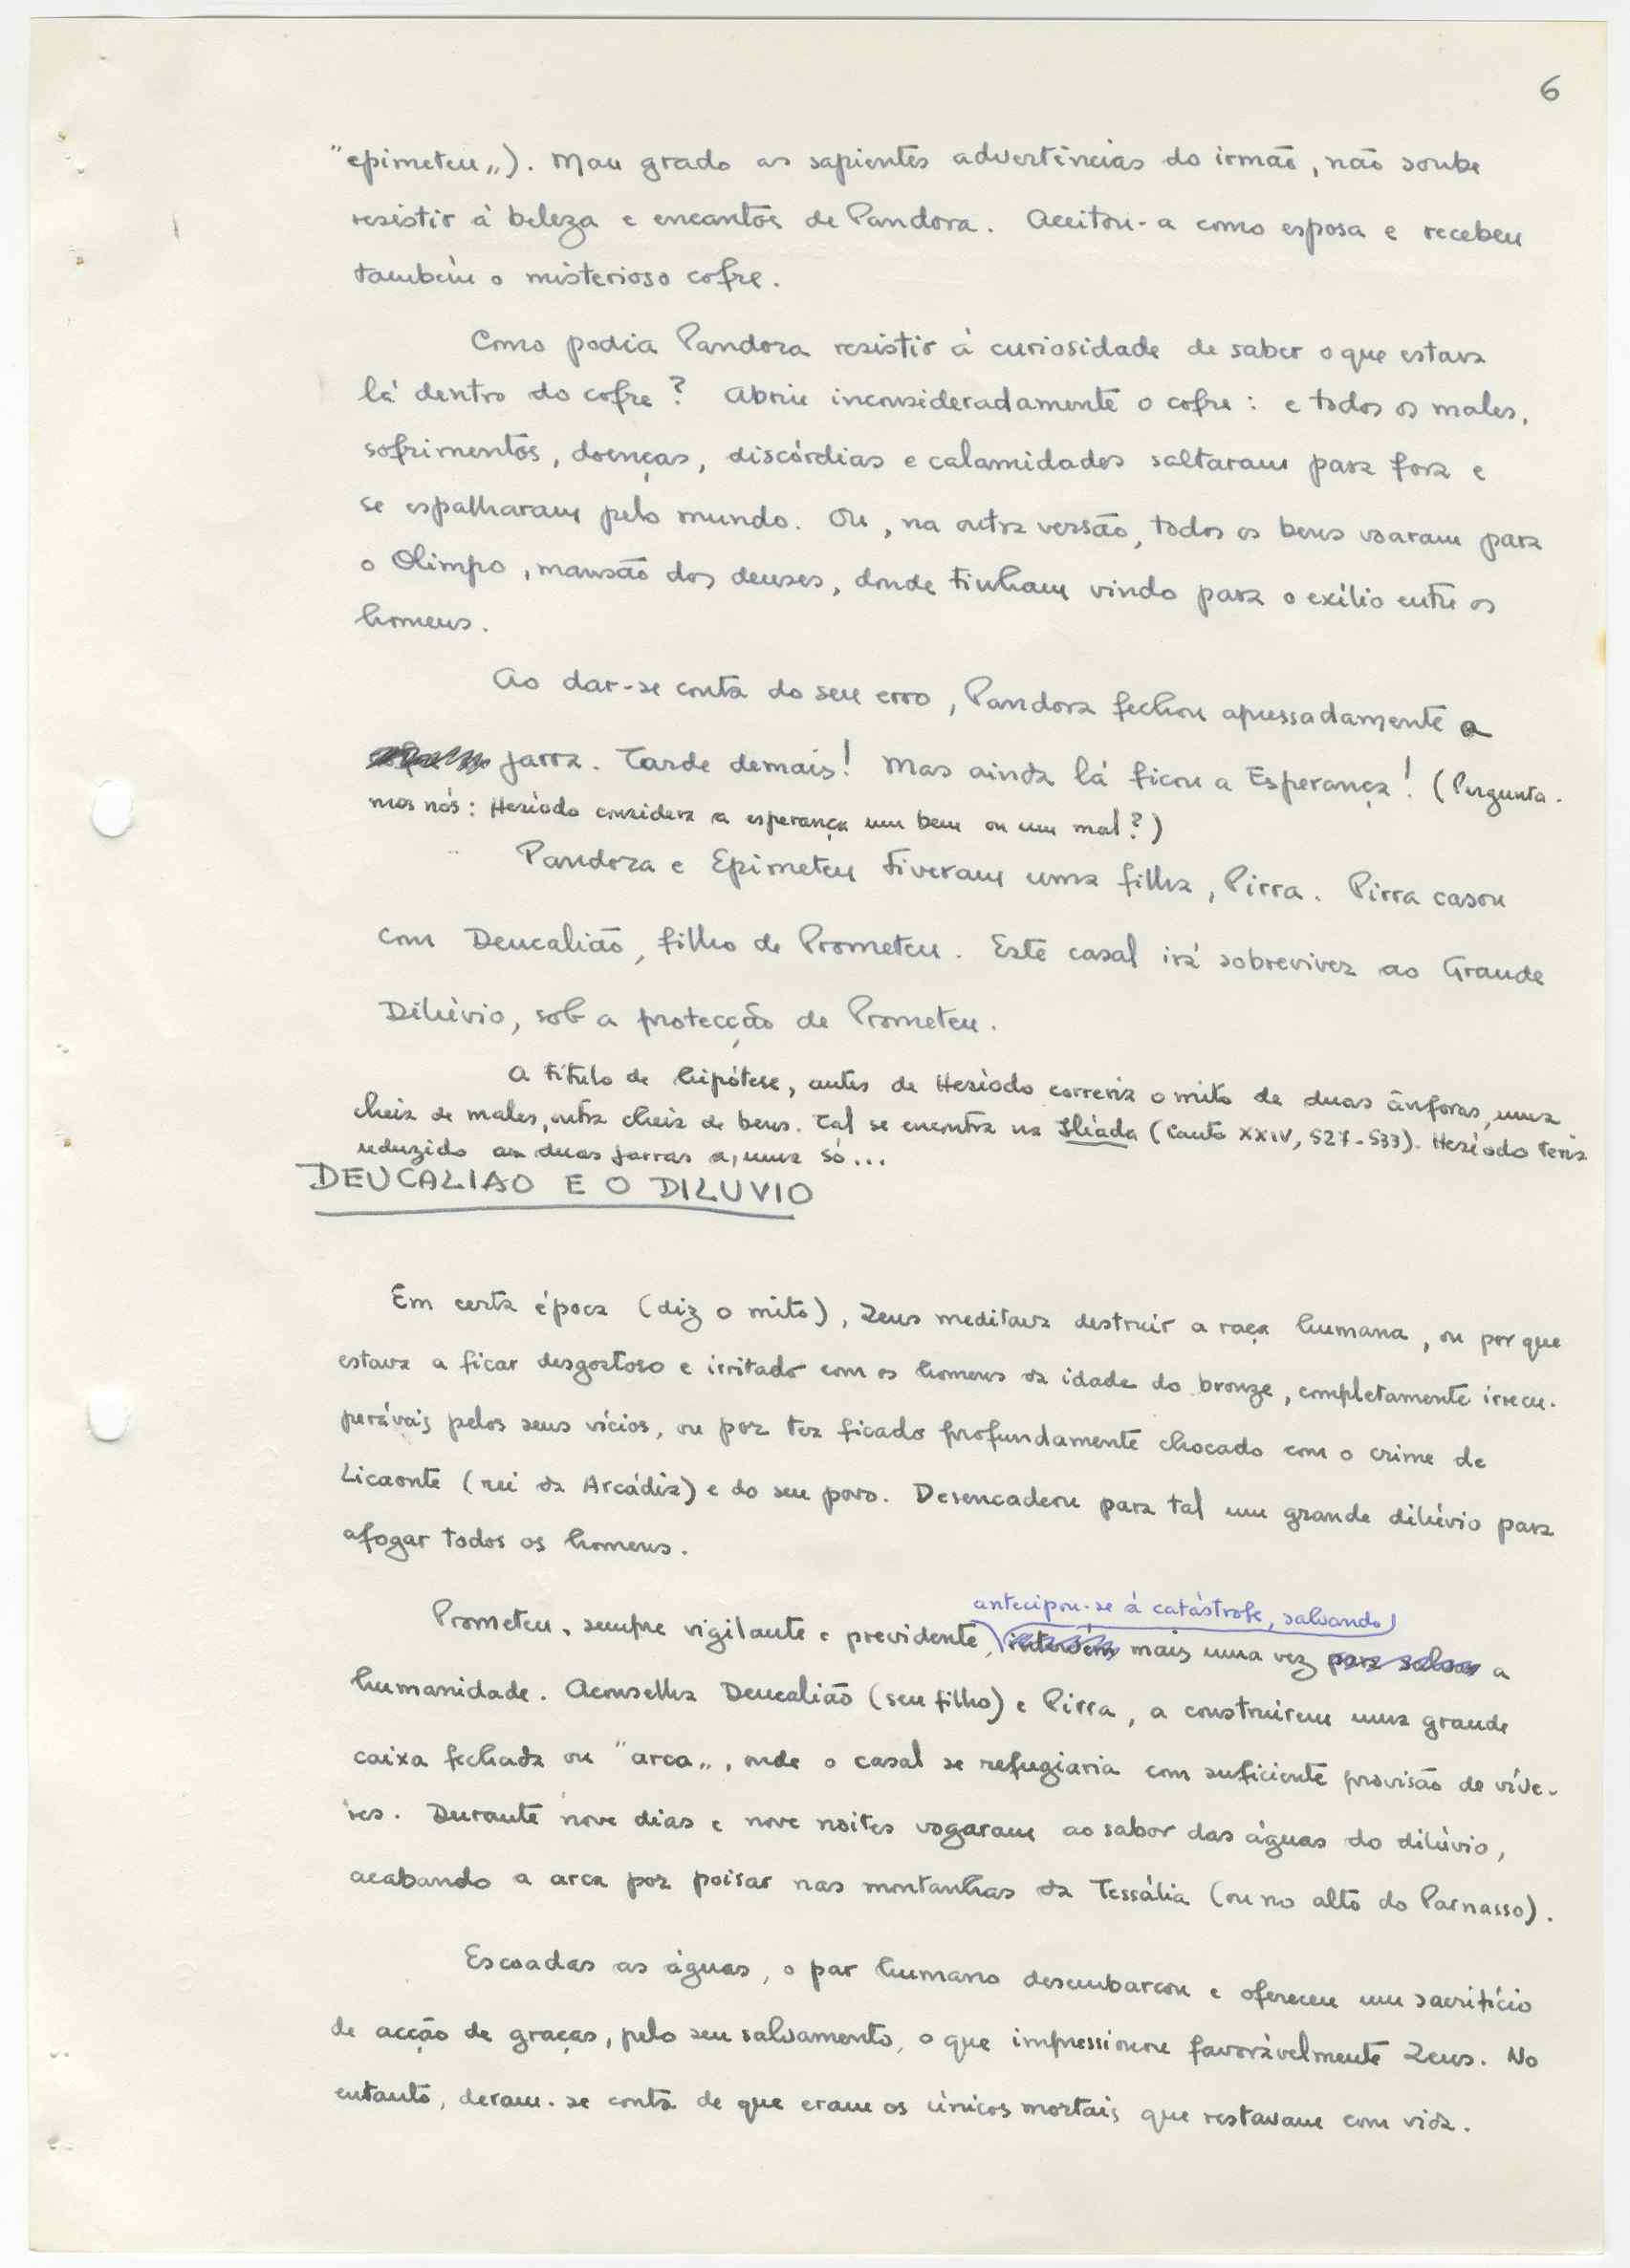 6
"epimeteu„). Mau grado as sapientes advertências do irmão, não soube
resistir à beleza e encantos de Pandora. Aceitou-a como esposa e recebeu
também o misterioso cofre.
Como podia Pandora resistir à curiosidade de saber o que estava
lá dentro do cofre? Abriu inconsideradamente o cofre: e todos os males,
sofrimentos, doenças, discórdias e calamidades saltaram para fora e
se espalharam pelo mundo. Ou, na outra versão, todos os bens voaram para
o Olimpo, mansão dos deuses, donde tinham vindo para o exílio entre os
homens.
Ao dar-se conta do seu erro, Pandora fechou apressadamente a
jarra. Tarde demais! Mas ainda lá ficou a Esperança! (Pergunta-
mos nós: Hesíodo considera a esperança um bem ou um mal?)
Pandora e Epimeteu tiveram uma filha, Pirra. Pirra casou
com Deucalião, filho de Prometeu. Este casal irá sobreviver ao Grande
Dilúvio, sob a protecção de Prometeu.
A título de hipótese, antes de Hesíodo correria o mito de duas ânforas, uma
cheia de males, outra cheia de bens. Tal se encontra na Ilíada (Canto XXIV, 527-533). Hesíodo teria
reduzido as duas jarras a uma só...
DEUCALIAO E O DILUVIO
Em certa época (diz o mito), Zeus meditava destruir a raça humana, ou por que
estava a ficar desgostoso e irritado com os homens da idade do bronze, completamente irrecu-
peráveis pelos seus vícios, ou por ter ficado profundamente chocado com o crime de
Licaonte (rei da Arcádia) e do seu povo. Desencadeou para tal um grande dilúvio para
afogar todos os homens.
antecipou-se à catástrofe, salvando
Prometeu, sempre vigilante e previdente, intervém mais uma vez para salvar a
humanidade. Aconselha Deucalião (seu filho) e Pirra, a construirem uma grande
caixa fechada ou "arca„, onde o casal se refugiaria com suficiente provisão de víve-
res. Durante nove dias e nove noites vogaram ao sabor das águas do dilúvio,
acabando a arca por poisar nas montanhas da Tessália (ou no alto do Parnasso).
Escoadas as águas, o par humano desembarcou e ofereceu um sacrifício
de acção de graças, pelo seu salvamento, o que impressionou favorávelmente Zeus. No
entanto, deram-se conta de que eram os únicos mortais que restavam com vida.